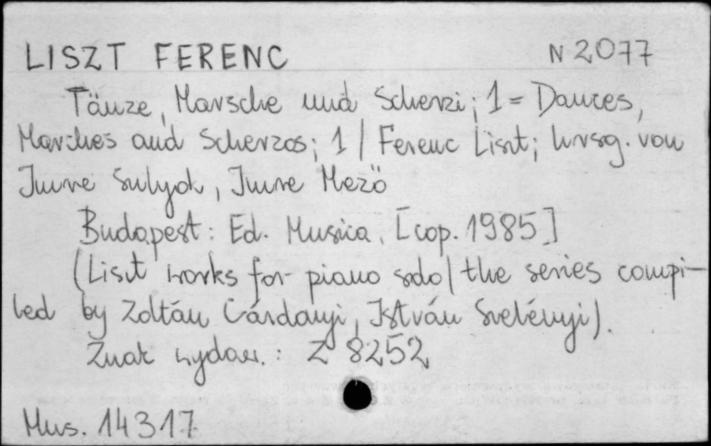 LISZT FERENC N 2077
Tänze, Marsche und Scherzi; 1 = Dances,
Marches and Scherzos; 1 / Ferenc Liszt; hrsg. von
Imre Sulyok, Imre Mezö
Budapest: Ed. Musica, [cop. 1985]
(Liszt works for piano solo / the series compi-
led by Zoltán Gárdonyi, István Szelényi).
Znak wydaw.: Z 8252
Mus. 14317